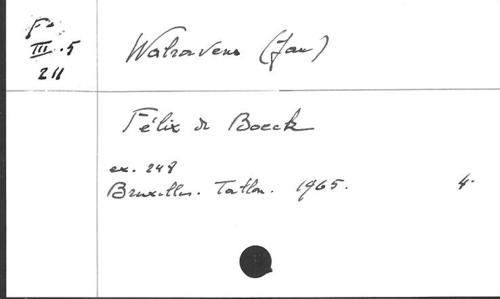 F°
III.5
211
Walravens (Jan)
Félix de Boeck
ex. 248
Bruxelles. 1965. 4.